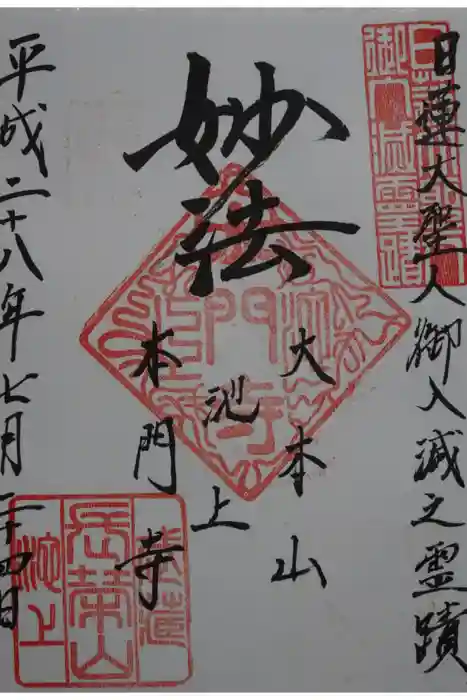 日蓮大聖人御入滅之霊蹟
大本山
妙法
池上
本門寺
平成二十八年七月二十四日
長榮山
池上